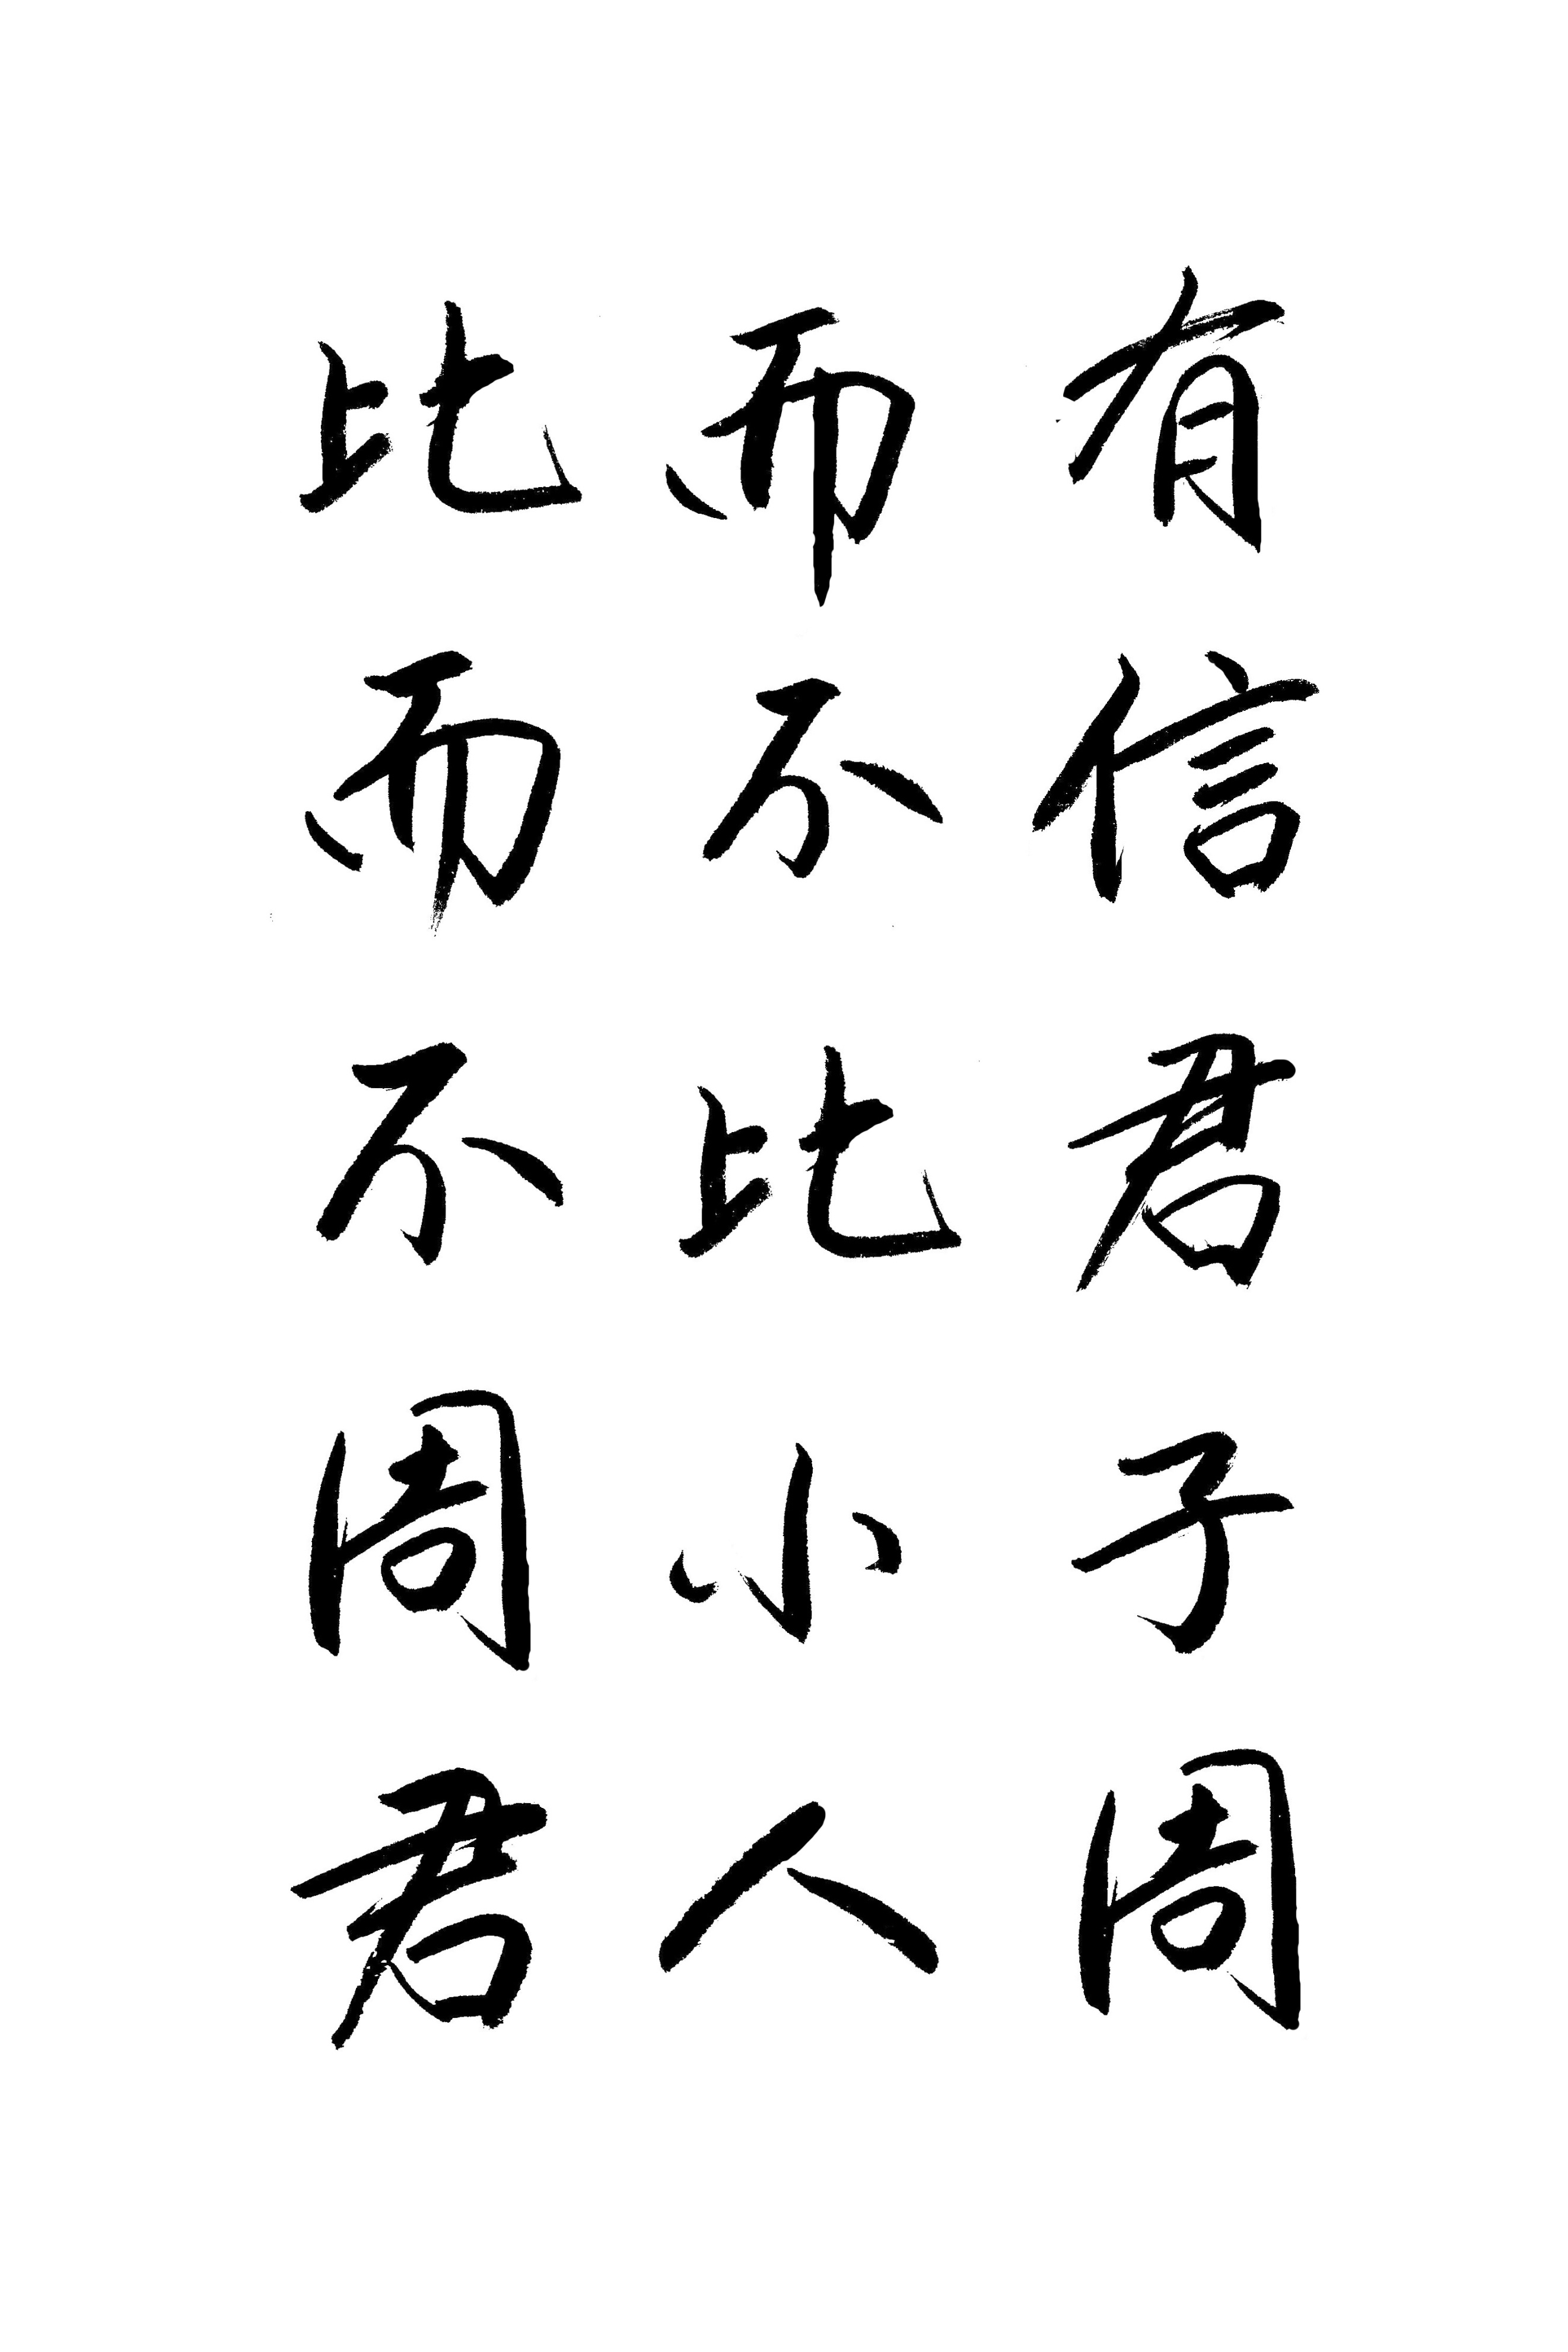 有信君子周
而不比小人
比而不周君